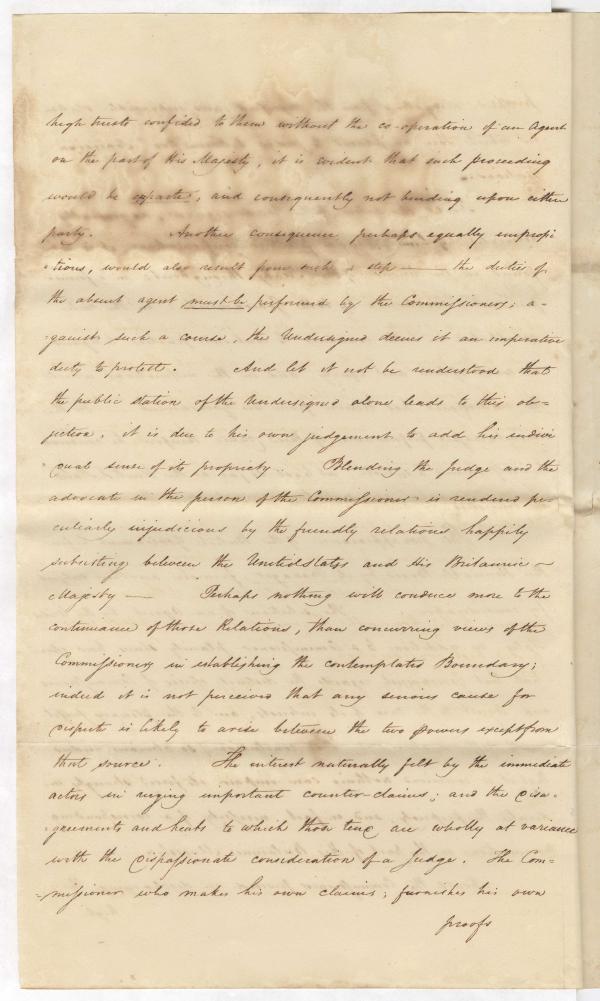 high trusts confided to them without the co-operation of an Agent
on the part of His Majesty, it is evident that such proceeding
would be exparte, and consequently not binding upon either
party. Another consequence perhaps equally unpropi
-tious, would also result from such a step — the duties of
the absent agent must be performed by the Commissioners; a-
-gainst such a course, the Undersigned deems it an imperative
duty to protest. And let it not be understood that
the public station of the Undersigned alone leads to this ob-
jection, it is due to his own judgement to add his indivi
-dual sense of its propriety. Blending the Judge and the
advocate in the person of the Commissioner is rendered pe-
culiarly injudicious by the friendly relations happily
subsisting between the United States and His Britannic
Majesty — Perhaps nothing will conduce more to the
continuance of those Relations, than concurring views of the
Commissioners in establishing the contemplated Boundary;
indeed it is not perceived that any serious cause for
dispute is likely to arise between the two powers except from
that source. The interest naturally felt by the immediate
actors in urging important counter-claims; and the disa-
-greements and heats to which those tend are wholly at variance
with the dispassionate consideration of a Judge. The Com-
-missioner who makes his own claims; furnishes his own
proofs